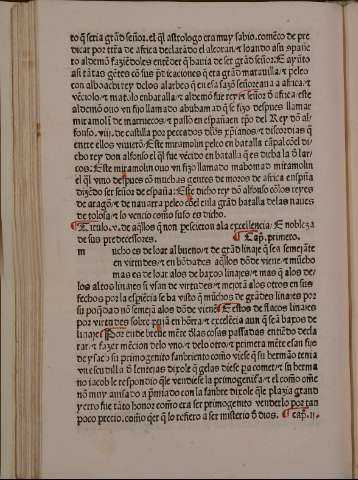 to q̃ seria grãd señor. el q̃l astrologo era muy sabio. comẽço de pre
dicar por trra de africa declarãdo el alcoran/ ⁊ loando assi españe
to aldemõ faziẽdoles entẽder q̃ hauia de ser grãd señor. E ayũto
assi tãtas gẽtes cõ sus p̃dicaciones q̃ era grãd marauilla/ ⁊ peleo
con alboaci rey delos alarbes q̃ en essa sazõ señoreaua a africa/ ⁊
vẽciolo/ ⁊ matolo en batalla/ ⁊ aldemõ fue rey ⁊ señor d̃ africa. este
aldemõ ouo vn fijo llamado abudam ad q̃ se fizo despues llamar
miramolĩ de marruecos/ ⁊ passo en españa en tp̃o del Rey dõ al
fonso. viij. de castilla por peccados dl̃os xp̃ianos/ ⁊ discordias q̃
entre ellos vuierõ. Este miramolin peleo en batalla cãpal cõel di
cho rey don alfonso el q̃l fue vẽcido en batalla que es dicha la d̃ lar
cos: Este miramolin ouo vn fijo llamado mahomad miramolin
el q̃l vino despues cõ muchas gentes de moros de africa en spaña
diziẽdo ser señor de españa: Este dicho rey dõ alfonso cõlos reyes
de aragõ/ ⁊ de nauarra peleo cõel en la grãd batalla delas naues
de tolosa/ ⁊ lo vencio como suso es dicho.
¶ Titulo. v. de aq̃llos q̃ non pesc̃ieron ala excellencia/ ⁊ nobleza
de sus predecessores. ¶ Cap̃. primero.
m ucho es de loar al bueno/ ⁊ de grãd linaje q̃ sea semejãte
en virtudes/ ⁊ en bõdades aq̃llos dõde viene/ ⁊ mucho
mas es de loar alos de baxos linajes/ ⁊ mas q̃ alos de
los altos linajes si vsan de virtudes/ ⁊ mejorã alos otros en sus
fechos por la esp̃iẽcia se ha visto q̃ muchos de grãdes linajes por
su poq̃dad nõ semejã alos dõde vienẽ ¶ E estos de flacos linajes
por virtudes sobre pujã en hõrra/ ⁊ excelẽcia aun q̃ sea baxos de
linajes ¶ Por ende breue mẽte d̃las cosas passadas entiẽdo decla
rar. ⁊ fazer mẽcion delo vno/ ⁊ delo otro/ ⁊ primera mẽte esau fijo
de ysac ⁊ su primogenito fanbriento como viese q̃ su hermão tenia
vn escudilla d̃ lentejas dixole q̃ gelas diese pa comer/ ⁊ su herma
no iacob le respondio que vendiese la primogenitura/ ⁊ el como õme
nõ muy auisado a p̃miado con la fanbre dixole q̃ le plazia grand
yerro fue tãto honor como era ser primogenito venderlo por tan
poco precio. como q̃er q̃ lo refiero a ser misterio d̃ dios. ¶ cap̃. ij.